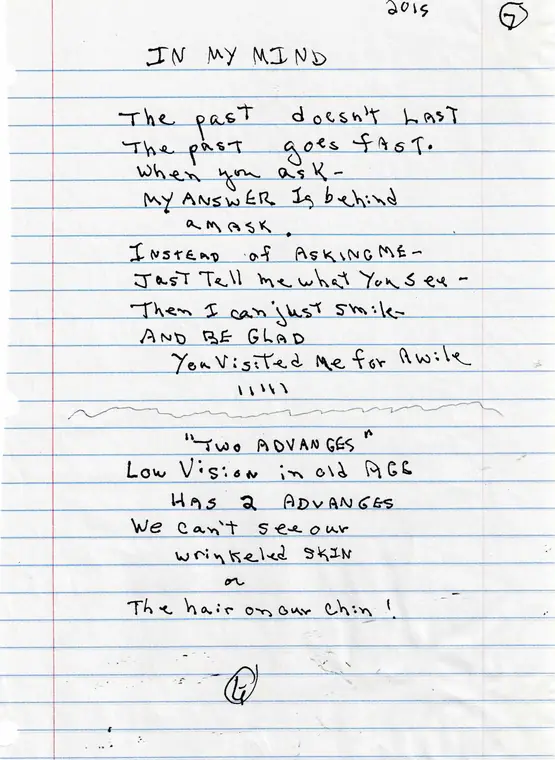 2015 7
IN MY MIND
The past doesn't LAST
The past goes fAST.
When you ask-
MY ANSWER Is behind
a MASK.
INSTEAD of ASKING ME-
JUST Tell me what You See-
Then I can just smile-
AND BE GLAD
You Visited Me for Awile
"TWO ADVANGES"
Low Vision in old AGE
HAS 2 ADVANGES
We can't see our
wrinkeled SKIN
or
The hair on our chin!